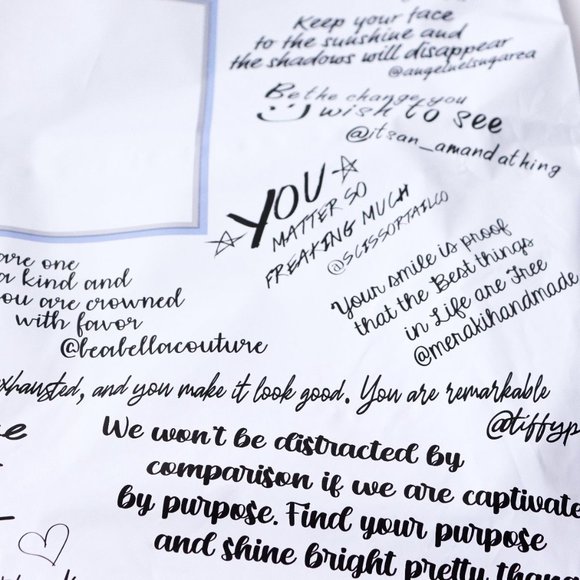 Keep your face
to the sunshine and
the shadows will disappear
@angeluelsugarea
Be the change you
wish to see
@itsan_amandathing
YOU
MATTER SO
FREAKING MUCH
@SCISSORTAILCO
Your smile is proof
that the Best things
in Life are Free
@merakihandmade
are one
a kind and
you are crowned
with favor
@beabellacouture
exhausted, and you make it look good. You are remarkable
@tiffyp
We won't be distracted by
comparison if we are captivate
by purpose. Find your purpose
and shine bright pretty